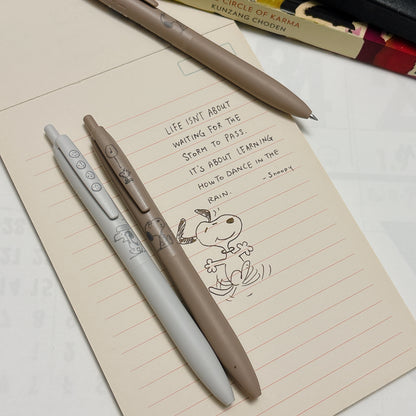 CIRCLE OF KARMA
KUNZANG CHODEN
LIFE ISN'T ABOUT
WAITING FOR THE
STORM TO PASS.
IT'S ABOUT LEARNING
HOW TO DANCE IN THE
RAIN.
- Snoopy